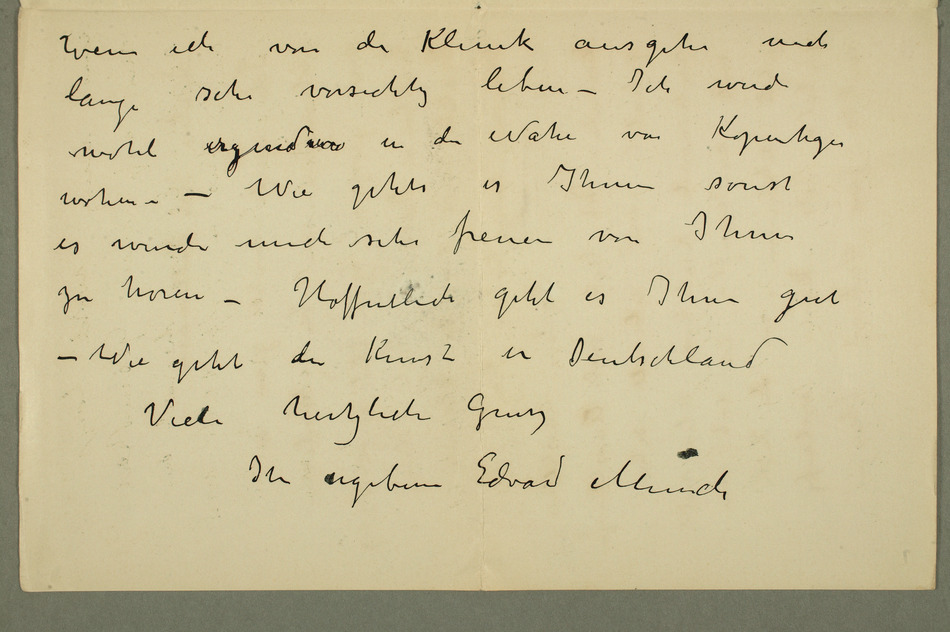 Wenn ich von der Klinik ausgehe muss
lange sehr vorsichtig leben – Ich werde
wohl irgendwo in der Nähe von Kopenhagen
wohnen – – Wie geht es Ihnen sonst
es wurde mich sehr freuen von Ihnen
zu horen – Hoffentlich geht es Ihnen gut
– Wie geht die Kunst in Deutschland
Viele hertzliche Grusz
Ihr ergebene Edvard Munch